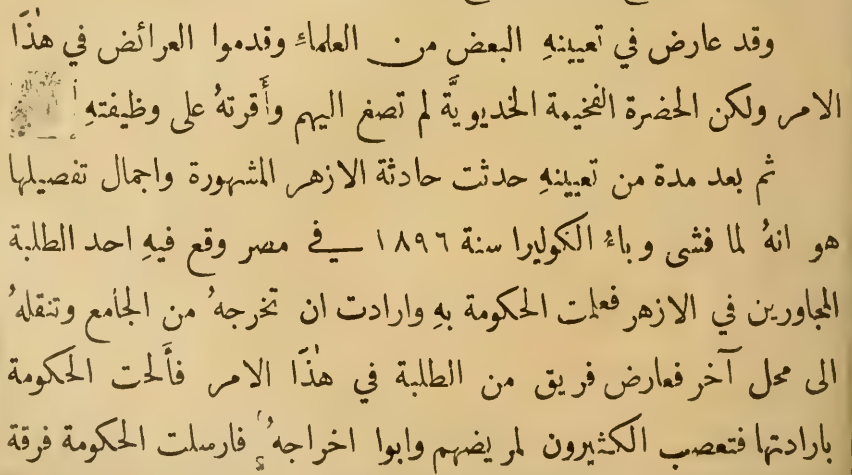 وقد عارض في تعيينهِ البعض من العلماءِ وقدموا العرائض في هٰذَا
الامر ولكن الحضرة الفخيمة الخديويَّة لم تصغ اليهم وأَقرتهُ على وظيفتهِ
ثم بعد مدة من تعيينهِ حدثت حادثة الازهر المشهورة واجمال تفصيلها
هو انهُ لما فشى وباءُ الكوليرا سنة ١٨٩٦ في مصر وقع فيهِ احد الطلبة
المجاورين في الازهر فعلمت الحكومة بهِ وارادت ان تخرجهُ من الجامع وتنقلهُ
الى محل آخر فعارض فريق من الطلبة في هٰذَا الامر فأَلحت الحكومة
بارادتها فتعصب الكثيرون لمريضهم وابوا اخراجهُ فارسلت الحكومة فرقة